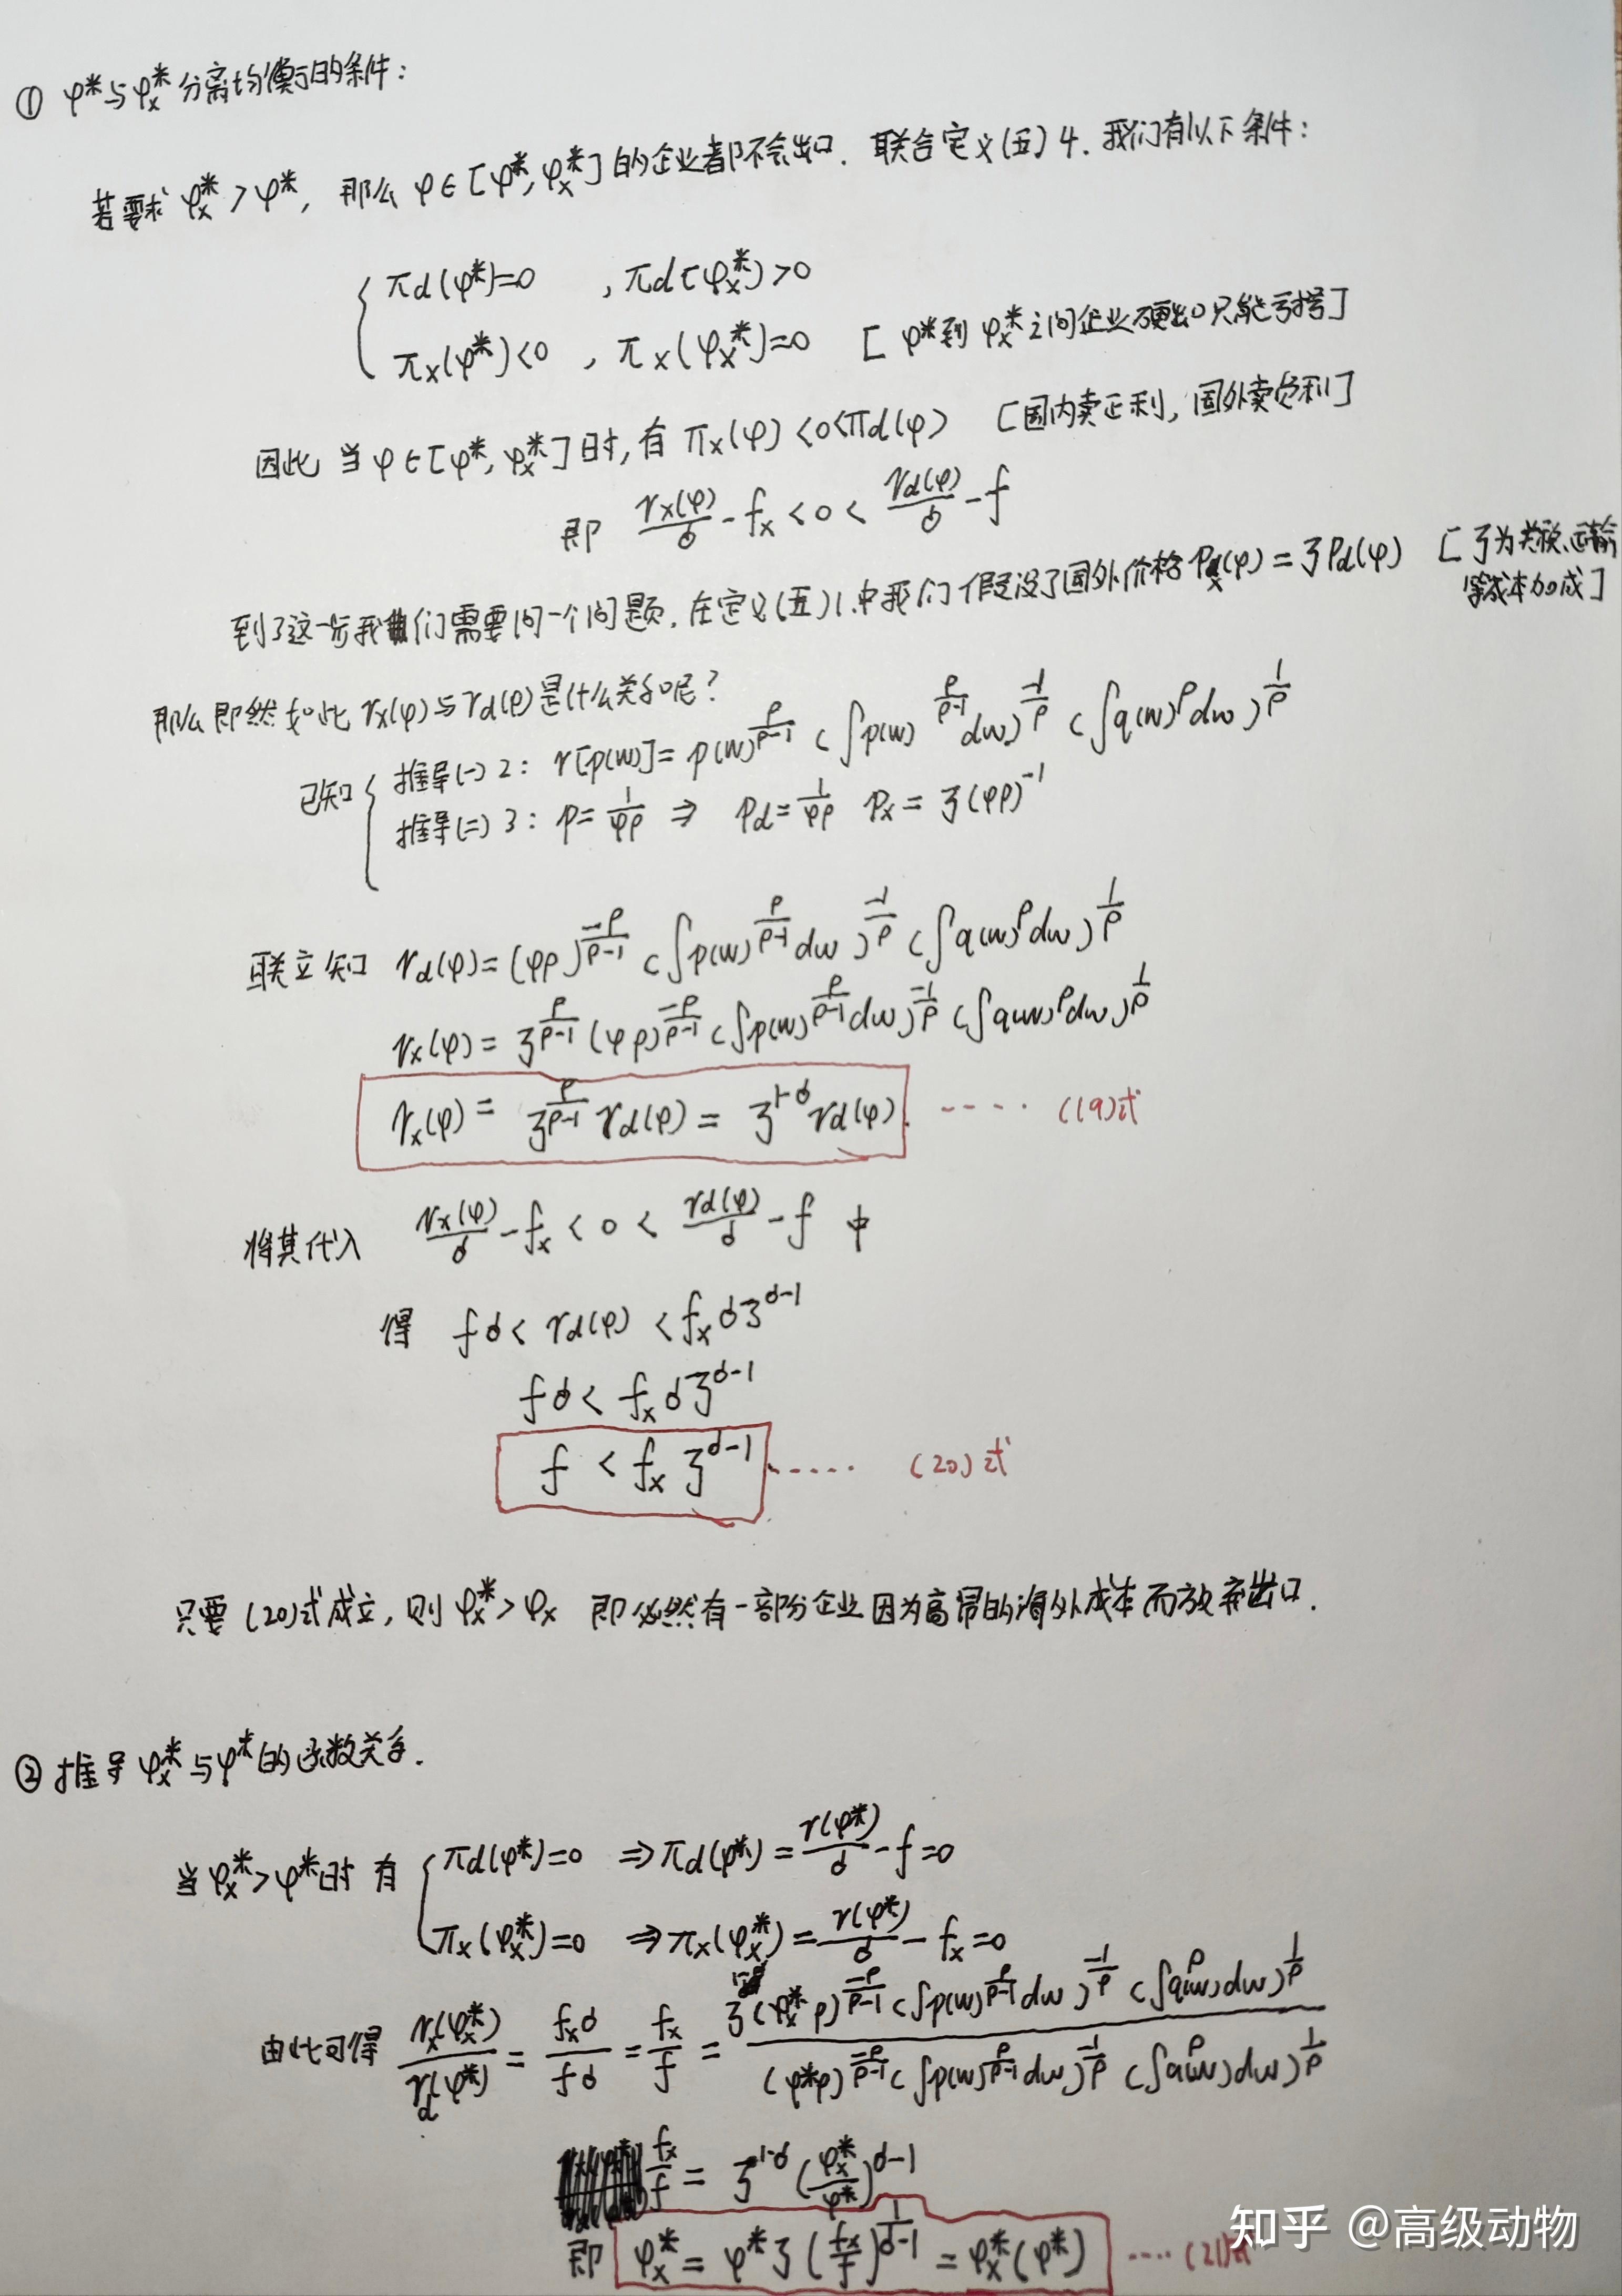 ① φ*与φx*分离均衡的条件：
若要求 φx*>φ*, 那么 φ∈[φ*,φx*]的企业都不会出口. 联合定义(五)4. 我们有以下条件：
{ πd(φ*)=0 , πd(φx*)>0
πx(φ*)<0 , πx(φx*)=0 [φ*到φx*之间企业硬出口只能亏损]
因此 当φ∈[φ*,φx*]时, 有 πx(φ)<0<πd(φ) [国内卖正利, 国外卖负利]
即 rx(φ)/σ - fx < 0 < rd(φ)/σ - f
到了这一步我们需要问一个问题, 在定义(五)1.中我们假设了国外价格Px(φ)=ζPd(φ) [ζ为关税、运输
等成本加成]
那么即然如此 rx(φ)与rd(φ)是什么关系呢?
已知 { 推导(一)2: r[p(w)]= p(w)^(ρ/(ρ-1)) (∫p(w)^(ρ/(ρ-1))dw)^(-1/ρ) (∫q(w)^ρ dw)^(1/ρ)
推导(二)3: p=1/(φρ) ⇒ Pd=1/(φρ) Px=ζ(φρ)^-1
联立知 rd(φ)=(φρ)^(-ρ/(ρ-1)) (∫p(w)^(ρ/(ρ-1))dw)^(-1/ρ) (∫q(w)^ρ dw)^(1/ρ)
rx(φ)= ζ^(ρ/(ρ-1)) (φρ)^(-ρ/(ρ-1)) (∫p(w)^(ρ/(ρ-1))dw)^(-1/ρ) (∫q(w)^ρ dw)^(1/ρ)
rx(φ)= ζ^(ρ/(ρ-1)) rd(φ)= ζ^(1-σ) rd(φ) ---- (19)式
将其代入 rx(φ)/σ - fx < 0 < rd(φ)/σ - f 中
得 fσ < rd(φ) < fxσζ^(σ-1)
fσ < fxσζ^(σ-1)
f < fxζ^(σ-1) ----- (20)式
只要(20)式成立, 则 φx*>φx 即必然有一部分企业因为高昂的海外成本而放弃出口.
② 推导φx*与φ*的函数关系.
当φx*>φ*时 有 { πd(φ*)=0 ⇒πd(φ*)=r(φ*)/σ - f=0
πx(φx*)=0 ⇒πx(φx*)=r(φ*)/σ - fx=0
由此可得 rx(φx*)/rd(φ*) = fxσ/fσ = fx/f = ζ(φx*ρ)^(-ρ/(ρ-1)) (∫p(w)^(ρ/(ρ-1))dw)^(-1/ρ) (∫q(w)^ρ dw)^(1/ρ) / (φ*ρ)^(-ρ/(ρ-1)) (∫p(w)^(ρ/(ρ-1))dw)^(-1/ρ) (∫q(w)^ρ dw)^(1/ρ)
fx/f = ζ^(1-σ) (φx*/φ*)^(σ-1)
即 φx* = φ*ζ(fx/f)^(1/(σ-1)) = φx*(φ*) ---- (21)式
知乎 @高级动物